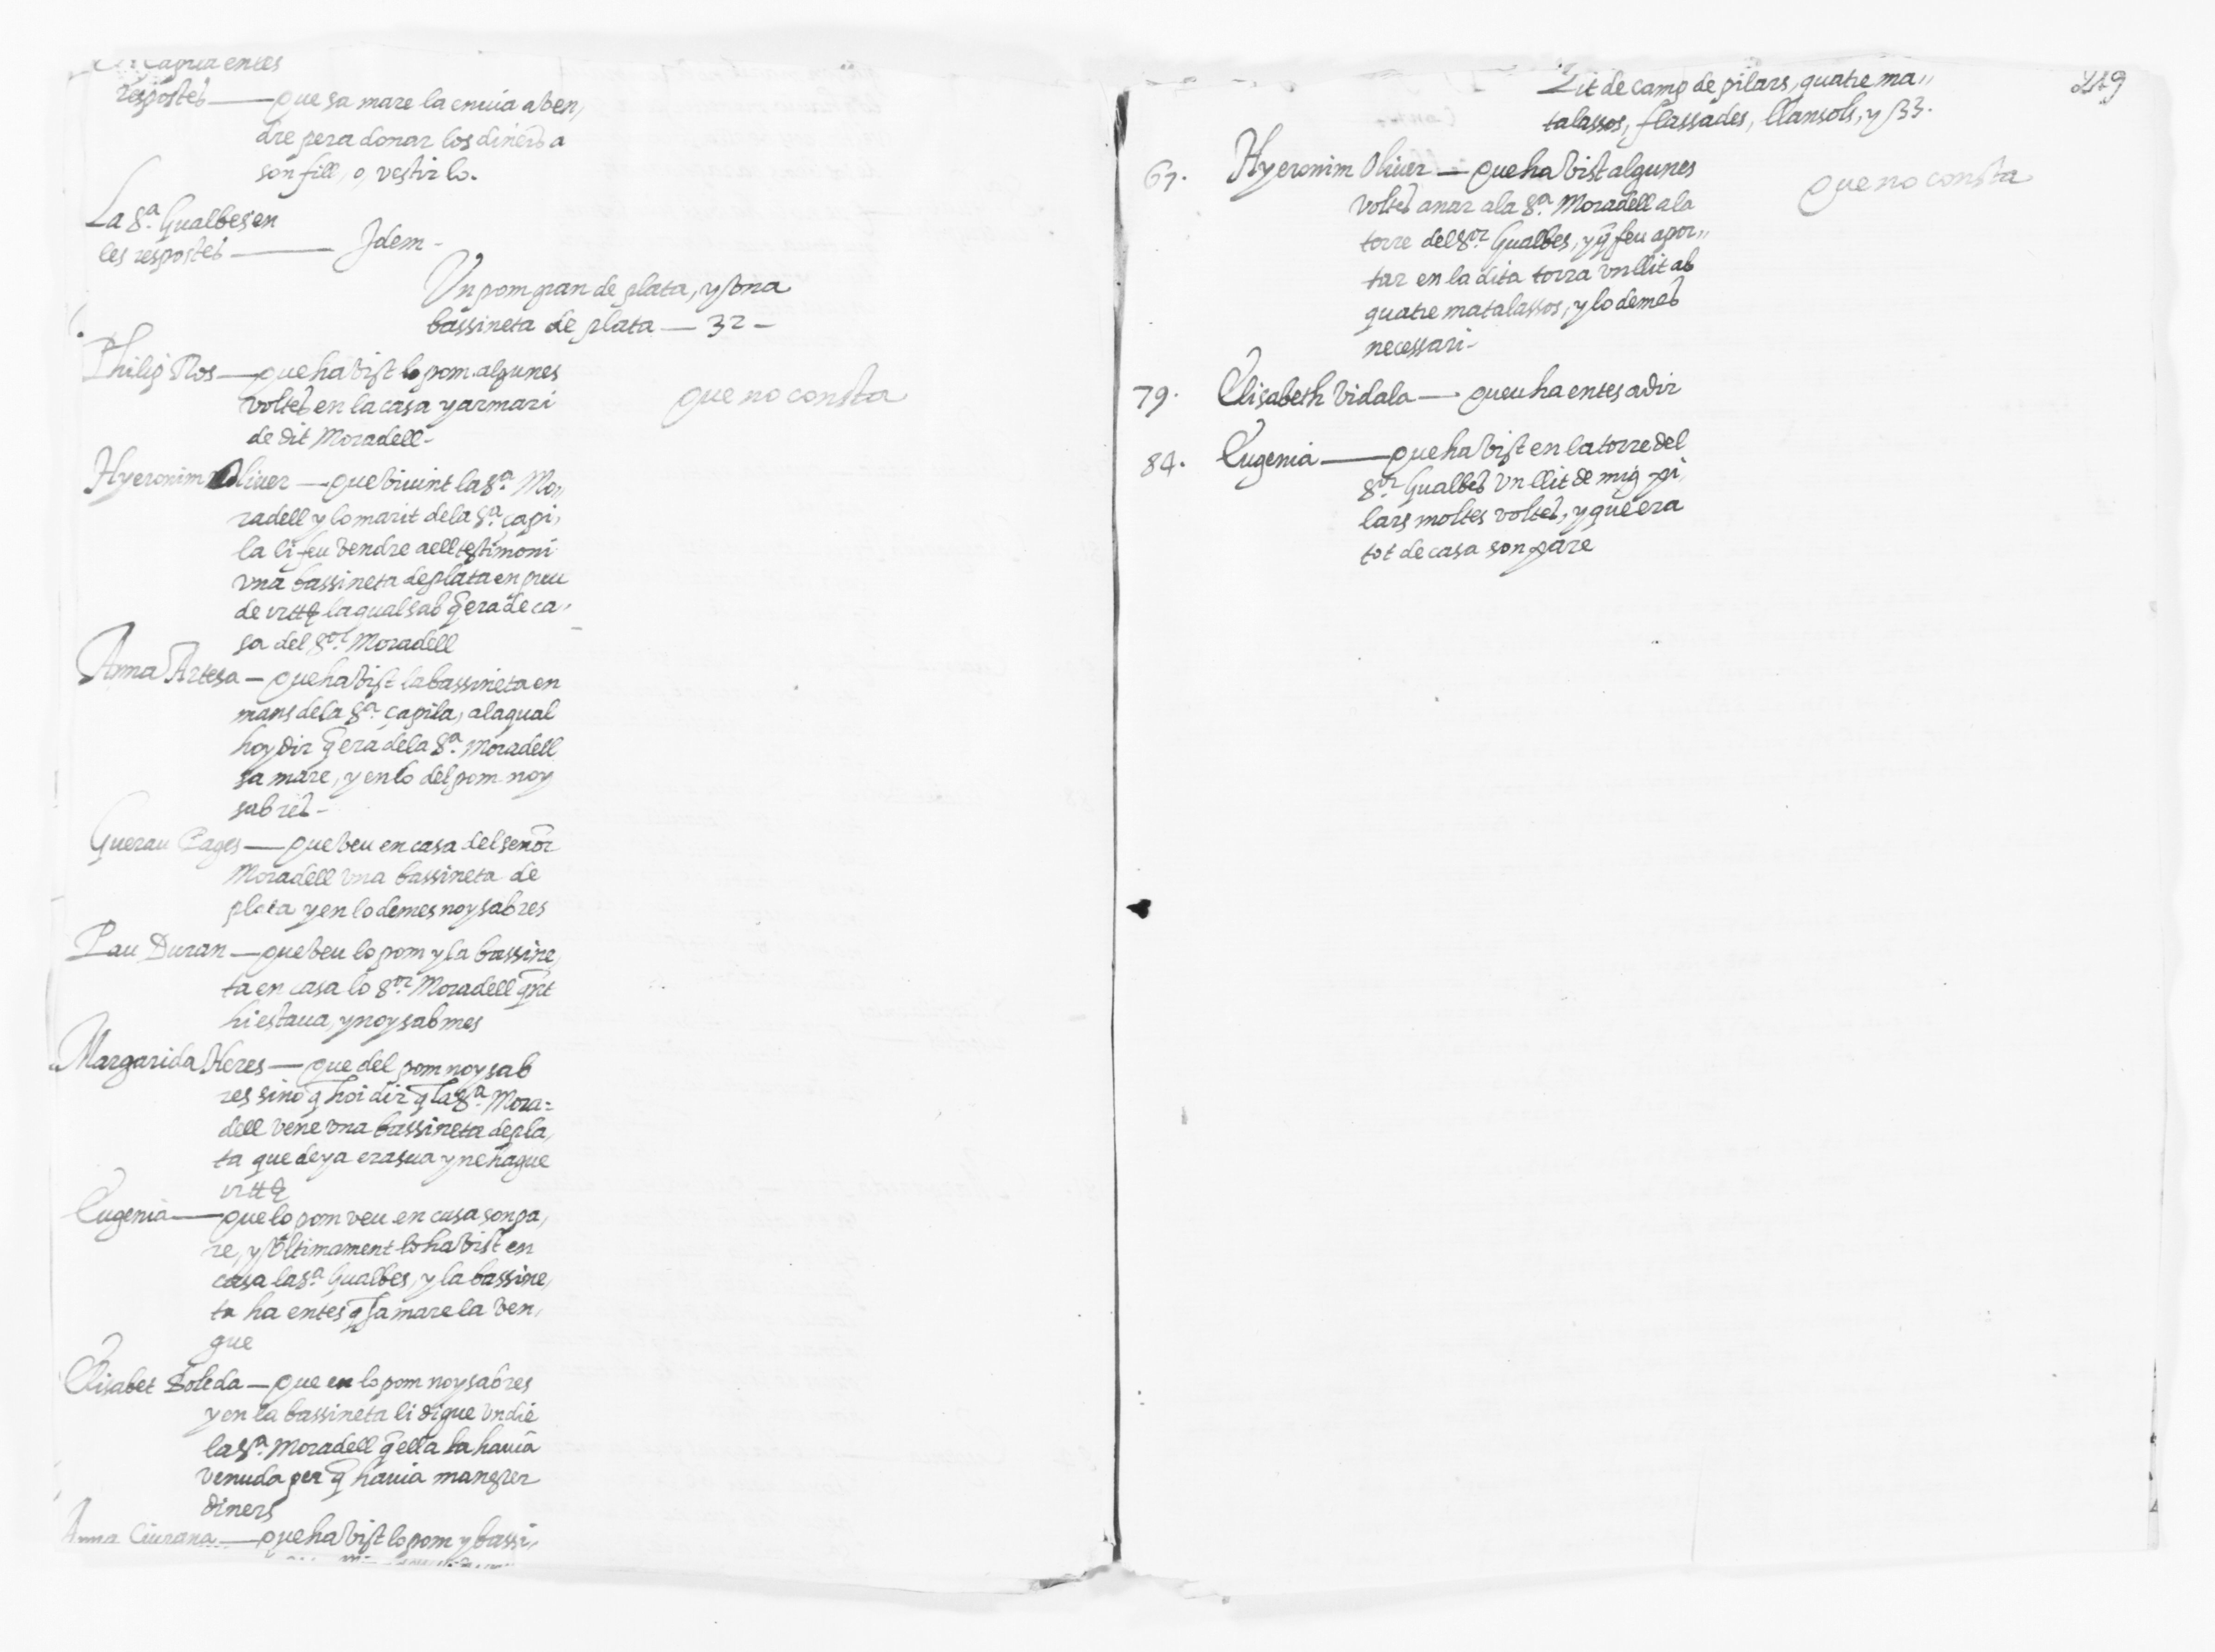 Çapila en les
respostes — que sa mare la enuia a ven,
dre pera donar los diners a
son fill, o, vestirlo.
La S.ª Gualbes en
les respostes — Idem -
Un pom gran de plata, y una
bassineta de plata — 32 -
Philip Ros — que ha vist lo pom algunes
voltes en la casa y armari
de dit Moradell -
que no consta
Hyeronim Oliuer — que viuint la S.ª Mo,,
radell y lo marit de la S.ª Çapi,
la li feu vendre a ell testimoni
vna bassineta de plata en preu
de la qual sab q̃ era de ca,,
sa del S.or Moradell
Anna Artesa — que ha vist la bassineta en
mans de la S.ª Çapila, a la qual
hoy dir q̃ era de la S.ª Moradell
sa mare, y en lo del pom noy
sab res -
Guerau Pages — que veu en casa del senõr
Moradell vna bassineta de
plata y en lo demes noy sab res
Pau Duran — que veu lo pom y la bassine,
ta en casa lo S.or Moradell qñt
hi estaua, y noy sab mes
Margarida Heres — que del pom noy sab
res sino q̃ hoi dir q̃ la S.ª Mora=
dell vene vna bassineta de pla,
ta que deya era sua y ne hague
Eugenia — que lo pom veu en casa son pa,
re, y vltimament lo ha vist en
casa la S.ª Gualbes, y la bassine,
ta ha entes q̃ sa mare la ven,
gue
Elisabet Soleda — que en lo pom noy sab res
y en la bassineta li digue vn die
la S.ª Moradell q̃ ella la hauia
venuda per q̃ hauia manester
diners
Anna Ciurana — que ha vist lo pom y bassi,
Llit de camp de pilars, quatre ma,,
talassos, flassades, llansols, y 33.
249
67. Hyeronim Oliuer — que ha vist algunes
voltes anar a la S.ª Moradell a la
torre del S.or Gualbes, y q̃ feu apor,,
tar en la dita torra vn llit ab
quatre matalassos, y lo demes
necessari -
que no consta
79. Elisabeth Vidala — queu ha entes a dir
84. Eugenia — que ha vist en la torre del
S.or Gualbes vn llit de mig pi,
lars moltes voltes, y que era
tot de casa son pare